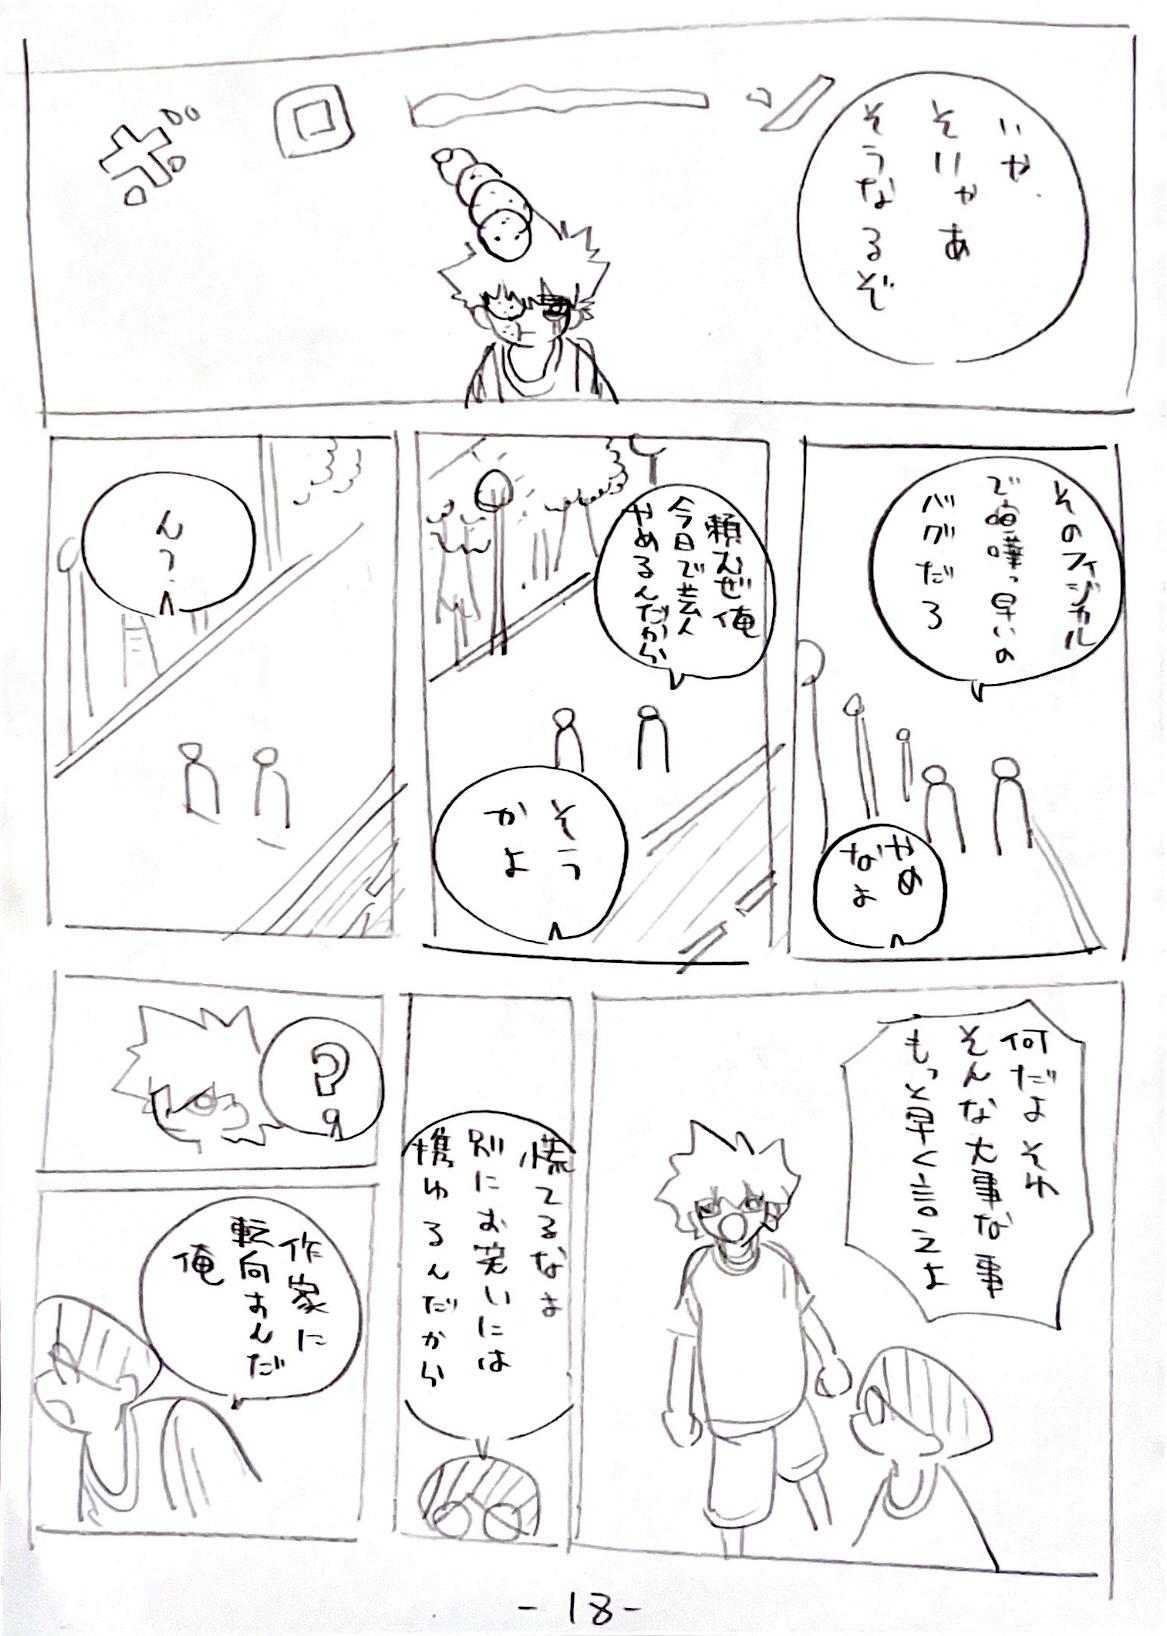 いや
そりゃあ
そうなるぞ
そのフィジカル
で喧嘩っ早いの
バグだろ
やめ
なよ
頼むぜ俺
今日で芸人
やめるんだから
そう
かよ
んっ
何だよそれ
そんな大事な事
もっと早く言えよ
慌てるなよ
別にお笑いには
携わるんだから
?
作家に
転向すんだ
俺
-18-